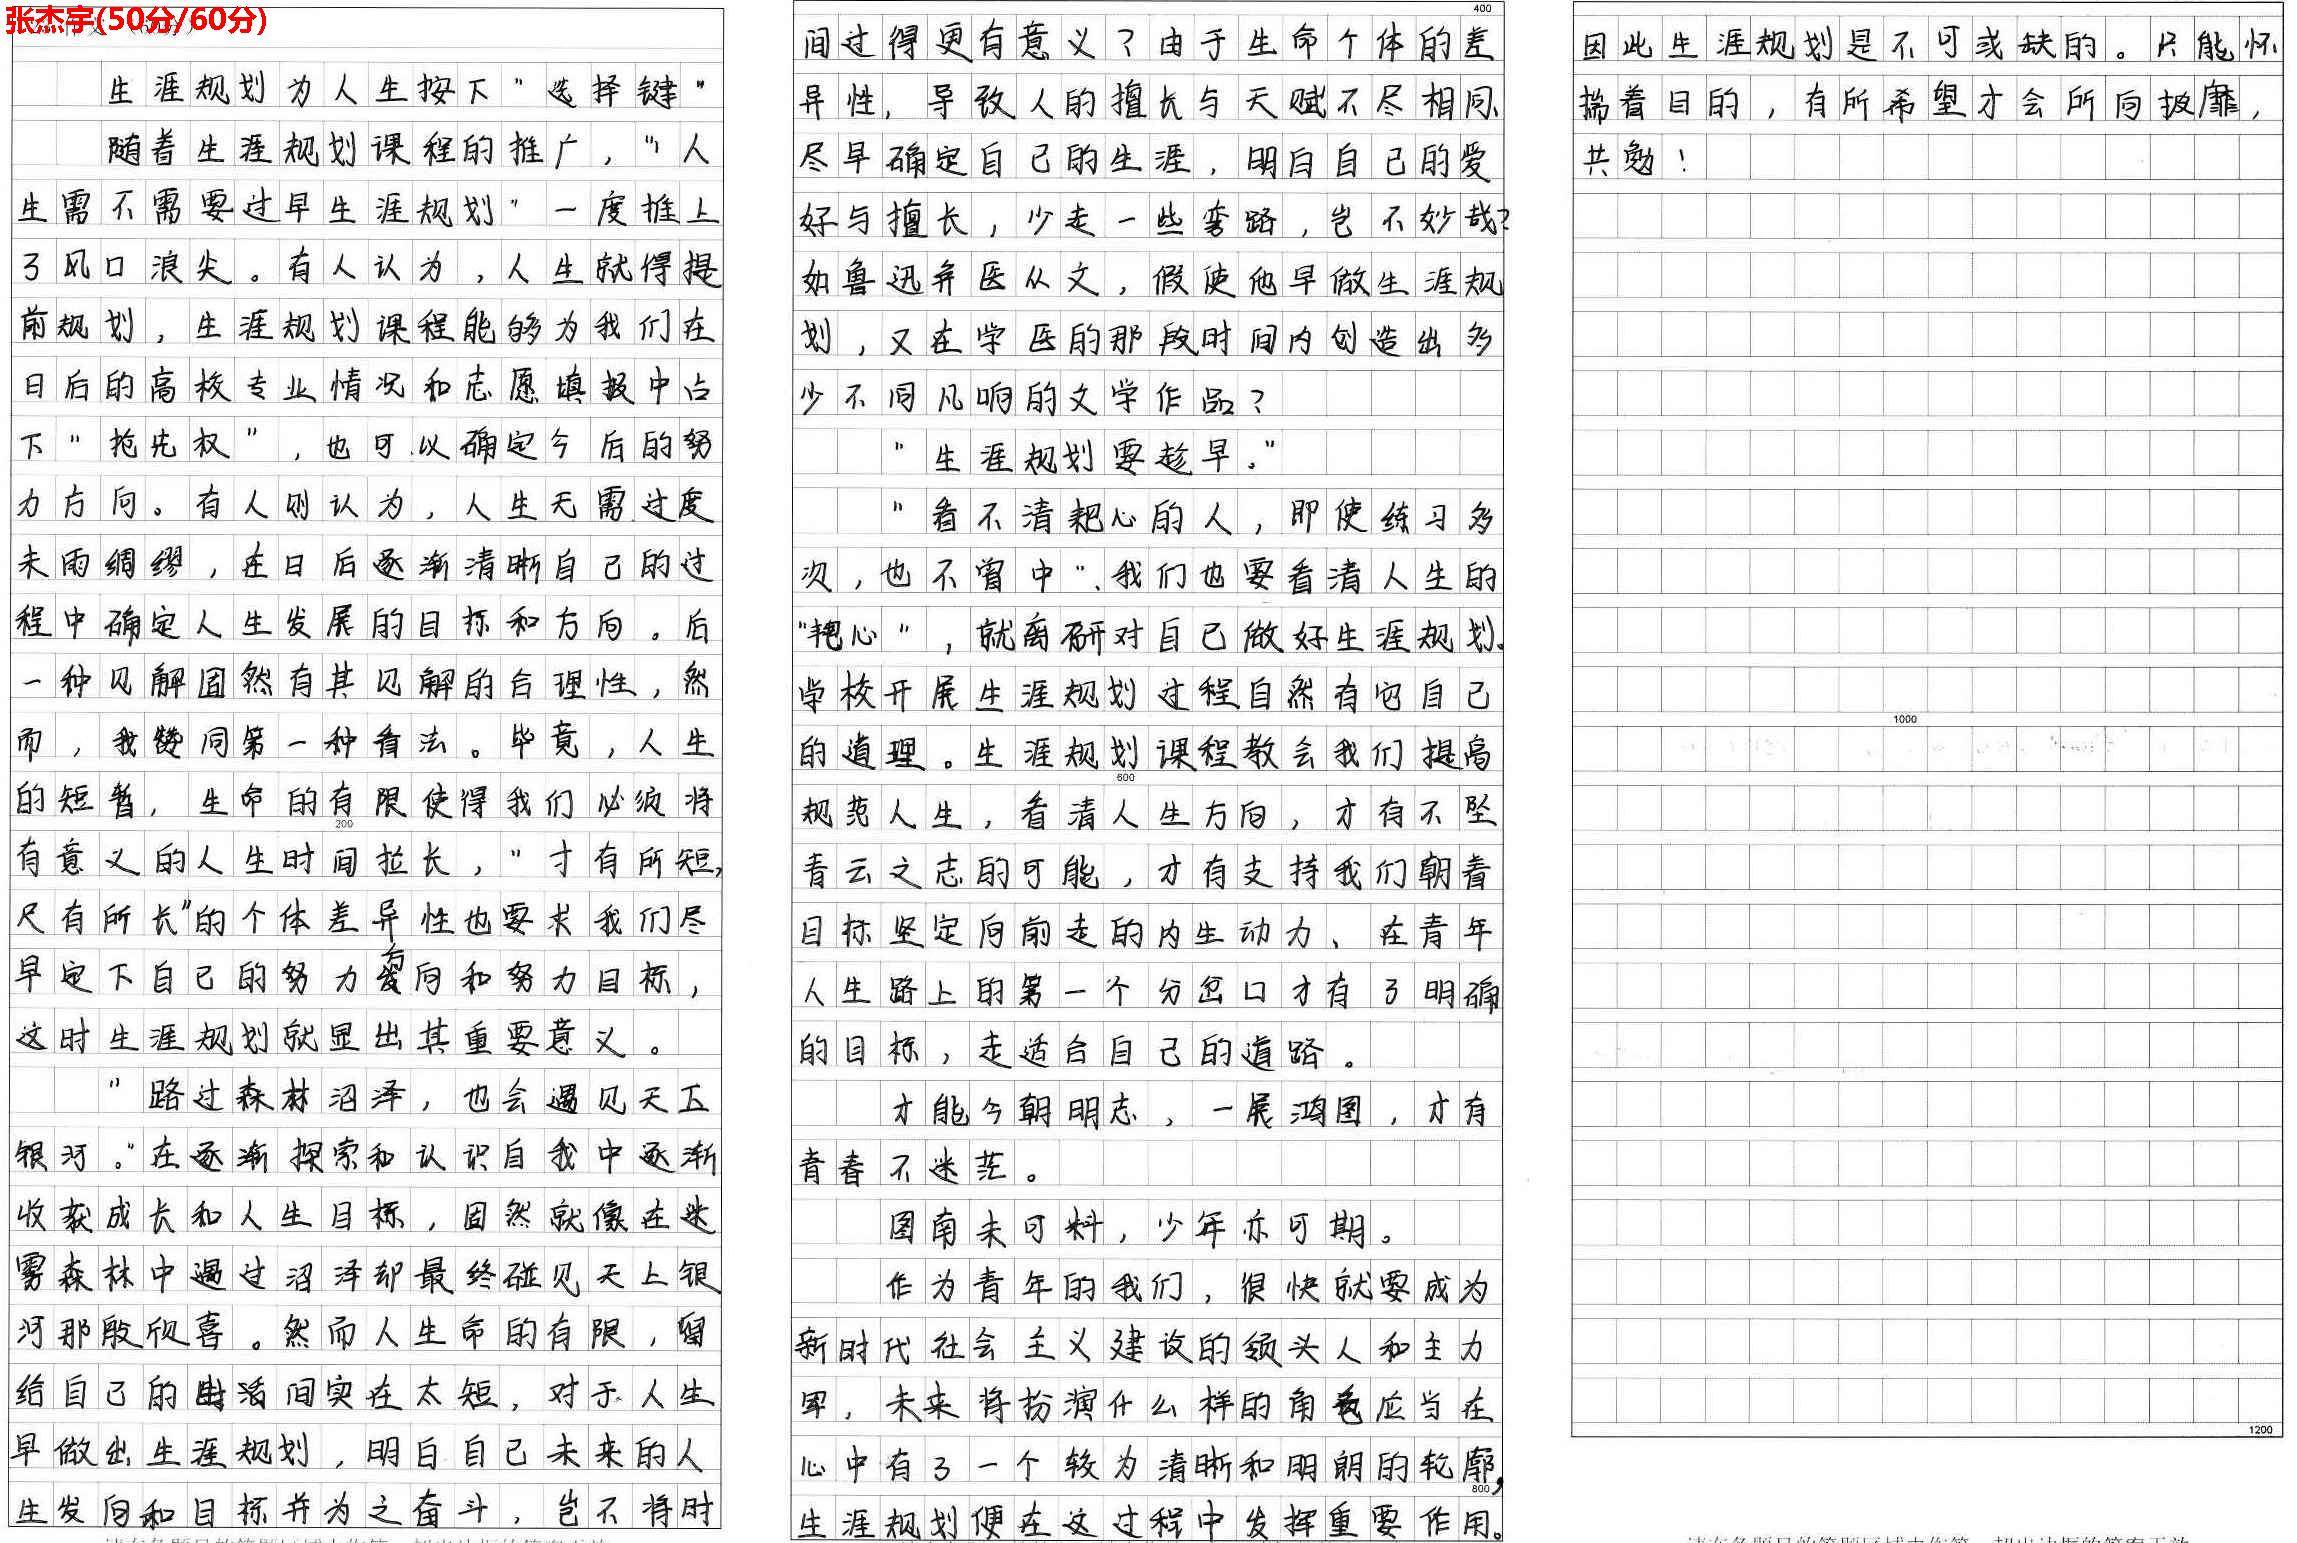 张杰宇(50分/60分)
生涯规划为人生按下"选择键"
随着生涯规划课程的推广，"人
生需不需要过早生涯规划"一度推上
了风口浪尖。有人认为，人生就得提
前规划，生涯规划课程能够为我们在
日后的高校专业情况和志愿填报中占
下"抢先权"，也可以确定今后的努
力方向。有人则认为，人生无需过度
未雨绸缪，在日后逐渐清晰自己的过
程中确定人生发展的目标和方向。后
一种见解固然有其见解的合理性，然
而，我赞同第一种看法。毕竟，人生
的短暂，生命的有限使得我们必须将
200
有意义的人生时间拉长，"寸有所短，
尺有所长"的个体差异性也要求我们尽
早定下自己的努力方向和努力目标，
这时生涯规划就显出其重要意义。
"路过森林沼泽，也会遇见天上
银河。"在逐渐探索和认识自我中逐渐
收获成长和人生目标，固然就像在迷
雾森林中遇过沼泽却最终碰见天上银
河那般欣喜。然而人生命的有限，留
给自己的时间实在太短，对于人生
早做出生涯规划，明白自己未来的人
生发向和目标并为之奋斗，岂不将时
400
间过得更有意义？由于生命个体的差
异性，导致人的擅长与天赋不尽相同、
尽早确定自己的生涯，明白自己的爱
好与擅长，少走一些弯路，岂不妙哉？
如鲁迅弃医从文，假使他早做生涯规
划，又在学医的那段时间内创造出多
少不同凡响的文学作品？
"生涯规划要趁早。"
"看不清耙心的人，即使练习多
次，也不曾中"、我们也要看清人生的
"耙心"，就离研对自己做好生涯规划。
学校开展生涯规划过程自然有它自己
的道理。生涯规划课程教会我们提高
600
规范人生，看清人生方向，才有不坠
青云之志的可能，才有支持我们朝着
目标坚定向前走的内生动力、在青年
人生路上的第一个分岔口才有了明确
的目标，走适合自己的道路。
才能今朝明志，一展鸿图，才有
青春不迷茫。
图南未可料，少年亦可期。
作为青年的我们，很快就要成为
新时代社会主义建设的领头人和主力
军，未来将扮演什么样的角色应当在
心中有了一个较为清晰和明朗的轮廓，
800
生涯规划便在这过程中发挥重要作用。
因此生涯规划是不可或缺的。只能怀
揣着目的，有所希望才会所向披靡，
共勉！
1000
1200